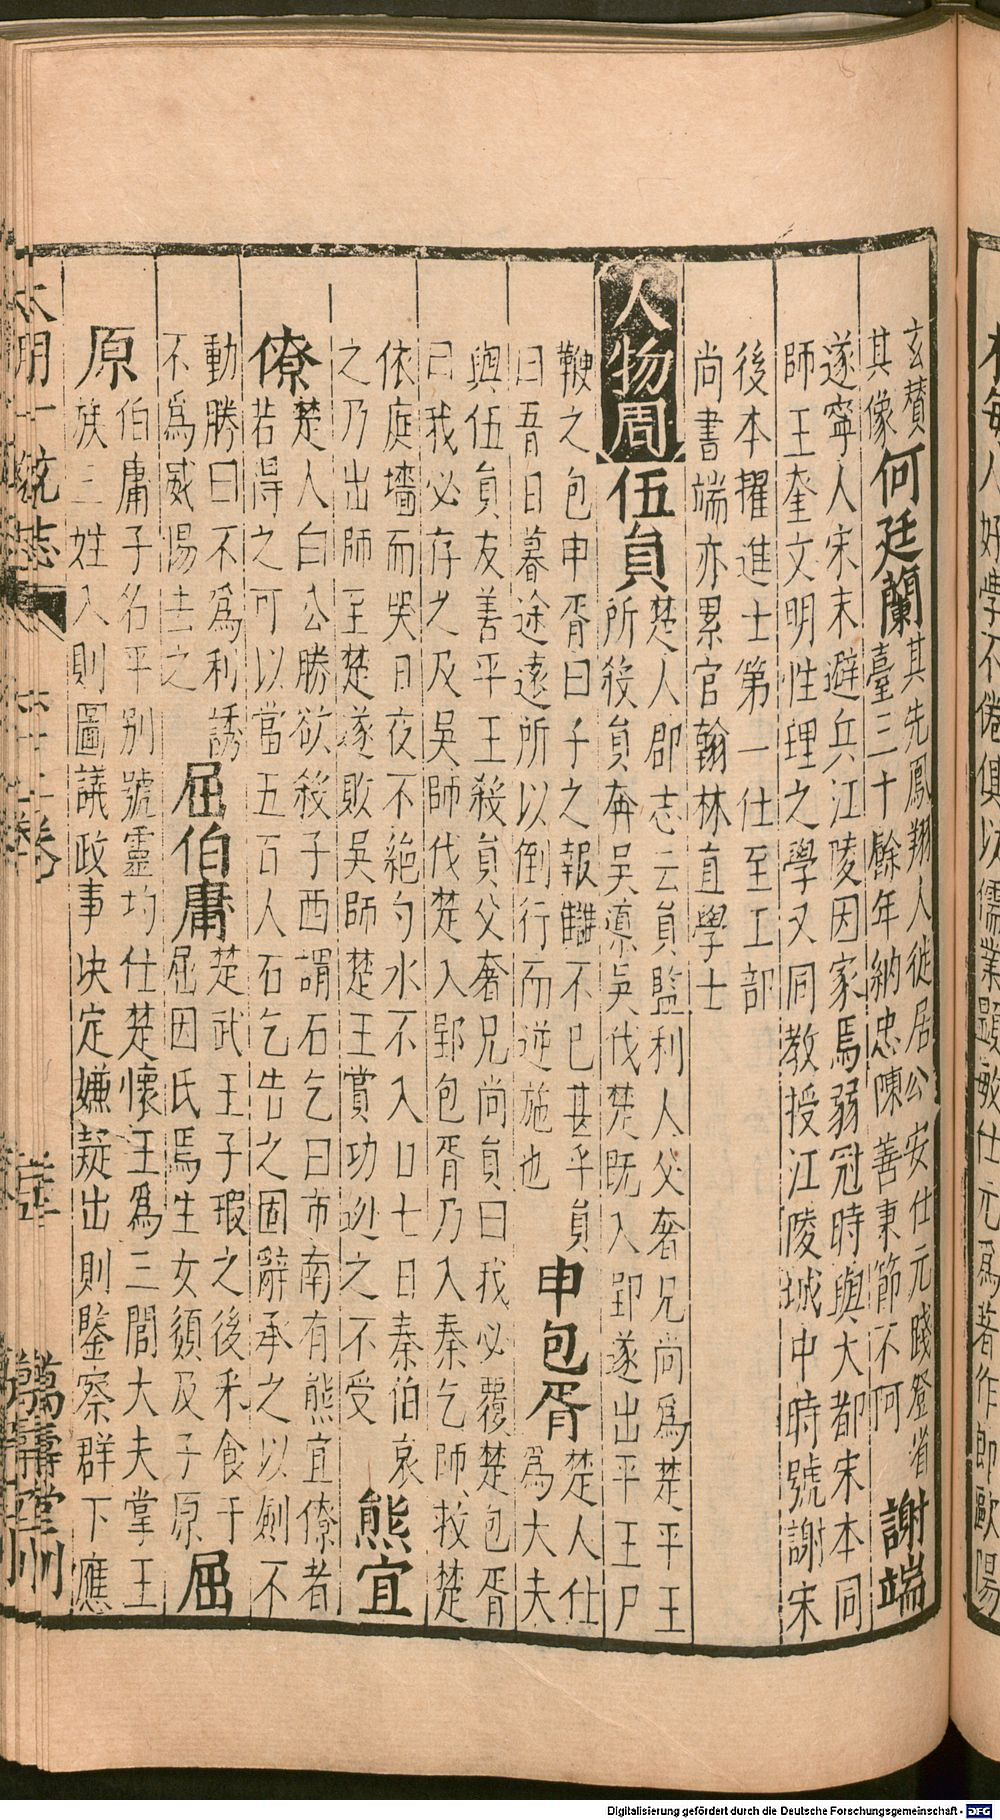 玄贊
其像
何廷蘭
其先鳳翔人徙居公安仕元踐登省
臺三十餘年納忠陳善秉節不阿
謝端
遂寧人宋末避兵江陵因家焉弱冠時與大都宋本同
師王奎文明性理之學又同教授江陵城中時號謝宋
後本擢進士第一仕至工部
尚書端亦累官翰林直學士
人物周
伍員
楚人郡志云員監利人父奢兄尚爲楚平王
所殺員奔吳導吳伐楚既入郢遂出平王尸
鞭之包申胥曰子之報讎不已甚乎員
曰吾日暮途遠所以倒行而逆施也
申包胥
楚人仕
爲大夫
與伍員友善平王殺員父奢兄尚員曰我必覆楚包胥
曰我必存之及吳師伐楚入郢包胥乃入秦乞師救楚
依庭墻而哭日夜不絕勺水不入口七日秦伯哀
之乃出師至楚遂敗吳師楚王賞功逃之不受
熊宜
僚
楚人白公勝欲殺子西謂石乞曰市南有熊宜僚者
若得之可以當五百人石乞告之固辭承之以劍不
動勝曰不爲利誘
不爲威惕去之
屈伯庸
楚武王子瑕之後釆食于
屈因氏焉生女須及子原
屈
原
伯庸子名平別號靈均仕楚懷王爲三閭大夫掌王
族三姓入則圖議政事决定嫌疑出則鑒察群下應
大明一統志
萬壽堂刊
人好學不倦俱以儒業顯敏仕元爲著作郎歐陽
Digitalisierung gefördert durch die Deutsche Forschungsgemeinschaft - DFG